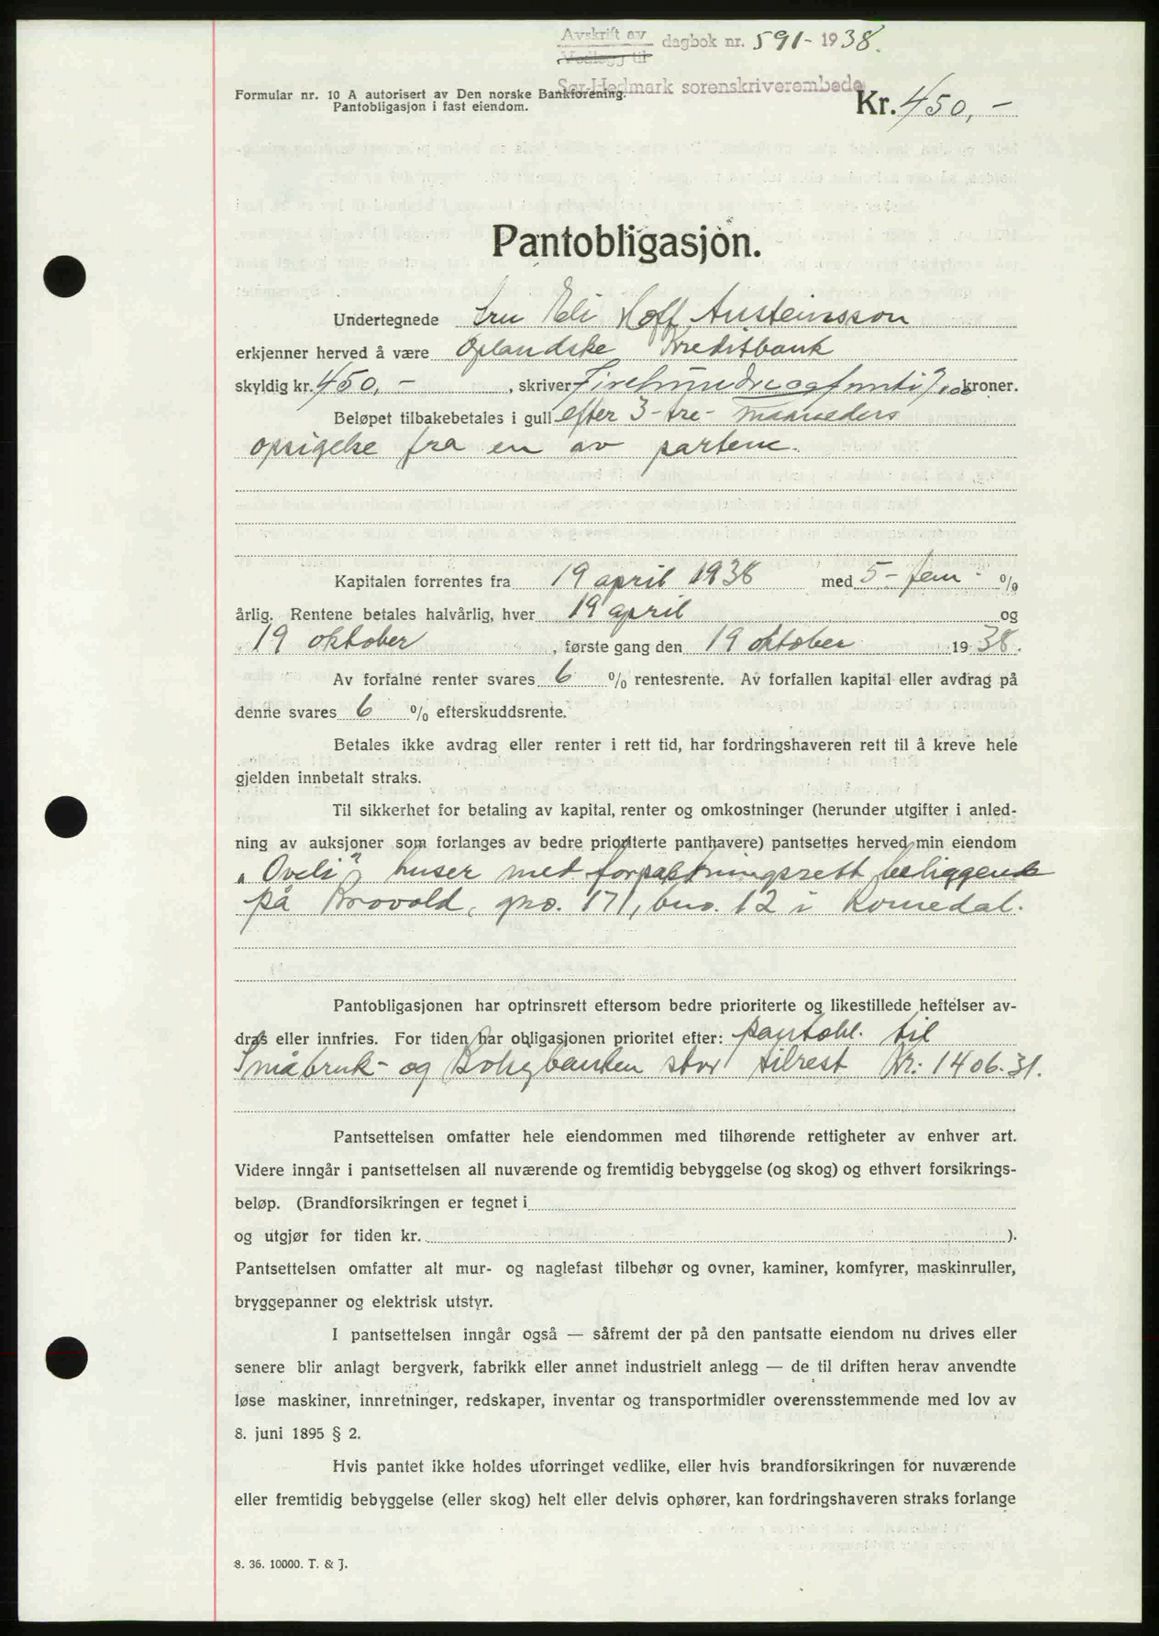 Avskrift av
Vedlegg til
dagbok nr. 591-1938.
Sør-Hedmark sorenskriverembede
Formular nr. 10 A autorisert av Den norske Bankforening.
Pantobligasjon i fast eiendom.
Kr. 450,-
Pantobligasjon.
Undertegnede Fru Eli Hoff Austeinsson
erkjenner herved å være Oplandske Kreditbank
skyldig kr. 450,- , skriver Firehundreogfemti 0/100 kroner.
Beløpet tilbakebetales i gull efter 3-tre- maaneders
opsigelse fra en av partene.
Kapitalen forrentes fra 19 april 1938 med 5-fem- %
årlig. Rentene betales halvårlig, hver 19 april og
19 oktober , første gang den 19 oktober 1938.
Av forfalne renter svares 6 % rentesrente. Av forfallen kapital eller avdrag på
denne svares 6 % efterskuddsrente.
Betales ikke avdrag eller renter i rett tid, har fordringshaveren rett til å kreve hele
gjelden innbetalt straks.
Til sikkerhet for betaling av kapital, renter og omkostninger (herunder utgifter i anled-
ning av auksjoner som forlanges av bedre prioriterte panthavere) pantsettes herved min eiendom
„Oveli" huser med forpaktningsrett beliggende
på Brovold, gno. 171, bno. 12 i Romedal.
Pantobligasjonen har optrinsrett eftersom bedre prioriterte og likestillede heftelser av-
dras eller innfries. For tiden har obligasjonen prioritet efter: pantobl. til
Småbruk- og Boligbanken stor tilrest Kr: 1406.31.
Pantsettelsen omfatter hele eiendommen med tilhørende rettigheter av enhver art.
Videre inngår i pantsettelsen all nuværende og fremtidig bebyggelse (og skog) og ethvert forsikrings-
beløp. (Brandforsikringen er tegnet i
og utgjør for tiden kr. ).
Pantsettelsen omfatter alt mur- og naglefast tilbehør og ovner, kaminer, komfyrer, maskinruller,
bryggepanner og elektrisk utstyr.
I pantsettelsen inngår også — såfremt der på den pantsatte eiendom nu drives eller
senere blir anlagt bergverk, fabrikk eller annet industrielt anlegg — de til driften herav anvendte
løse maskiner, innretninger, redskaper, inventar og transportmidler overensstemmende med lov av
8. juni 1895 § 2.
Hvis pantet ikke holdes uforringet vedlike, eller hvis brandforsikringen for nuværende
eller fremtidig bebyggelse (eller skog) helt eller delvis ophører, kan fordringshaveren straks forlange
8. 36. 10000. T. & J.